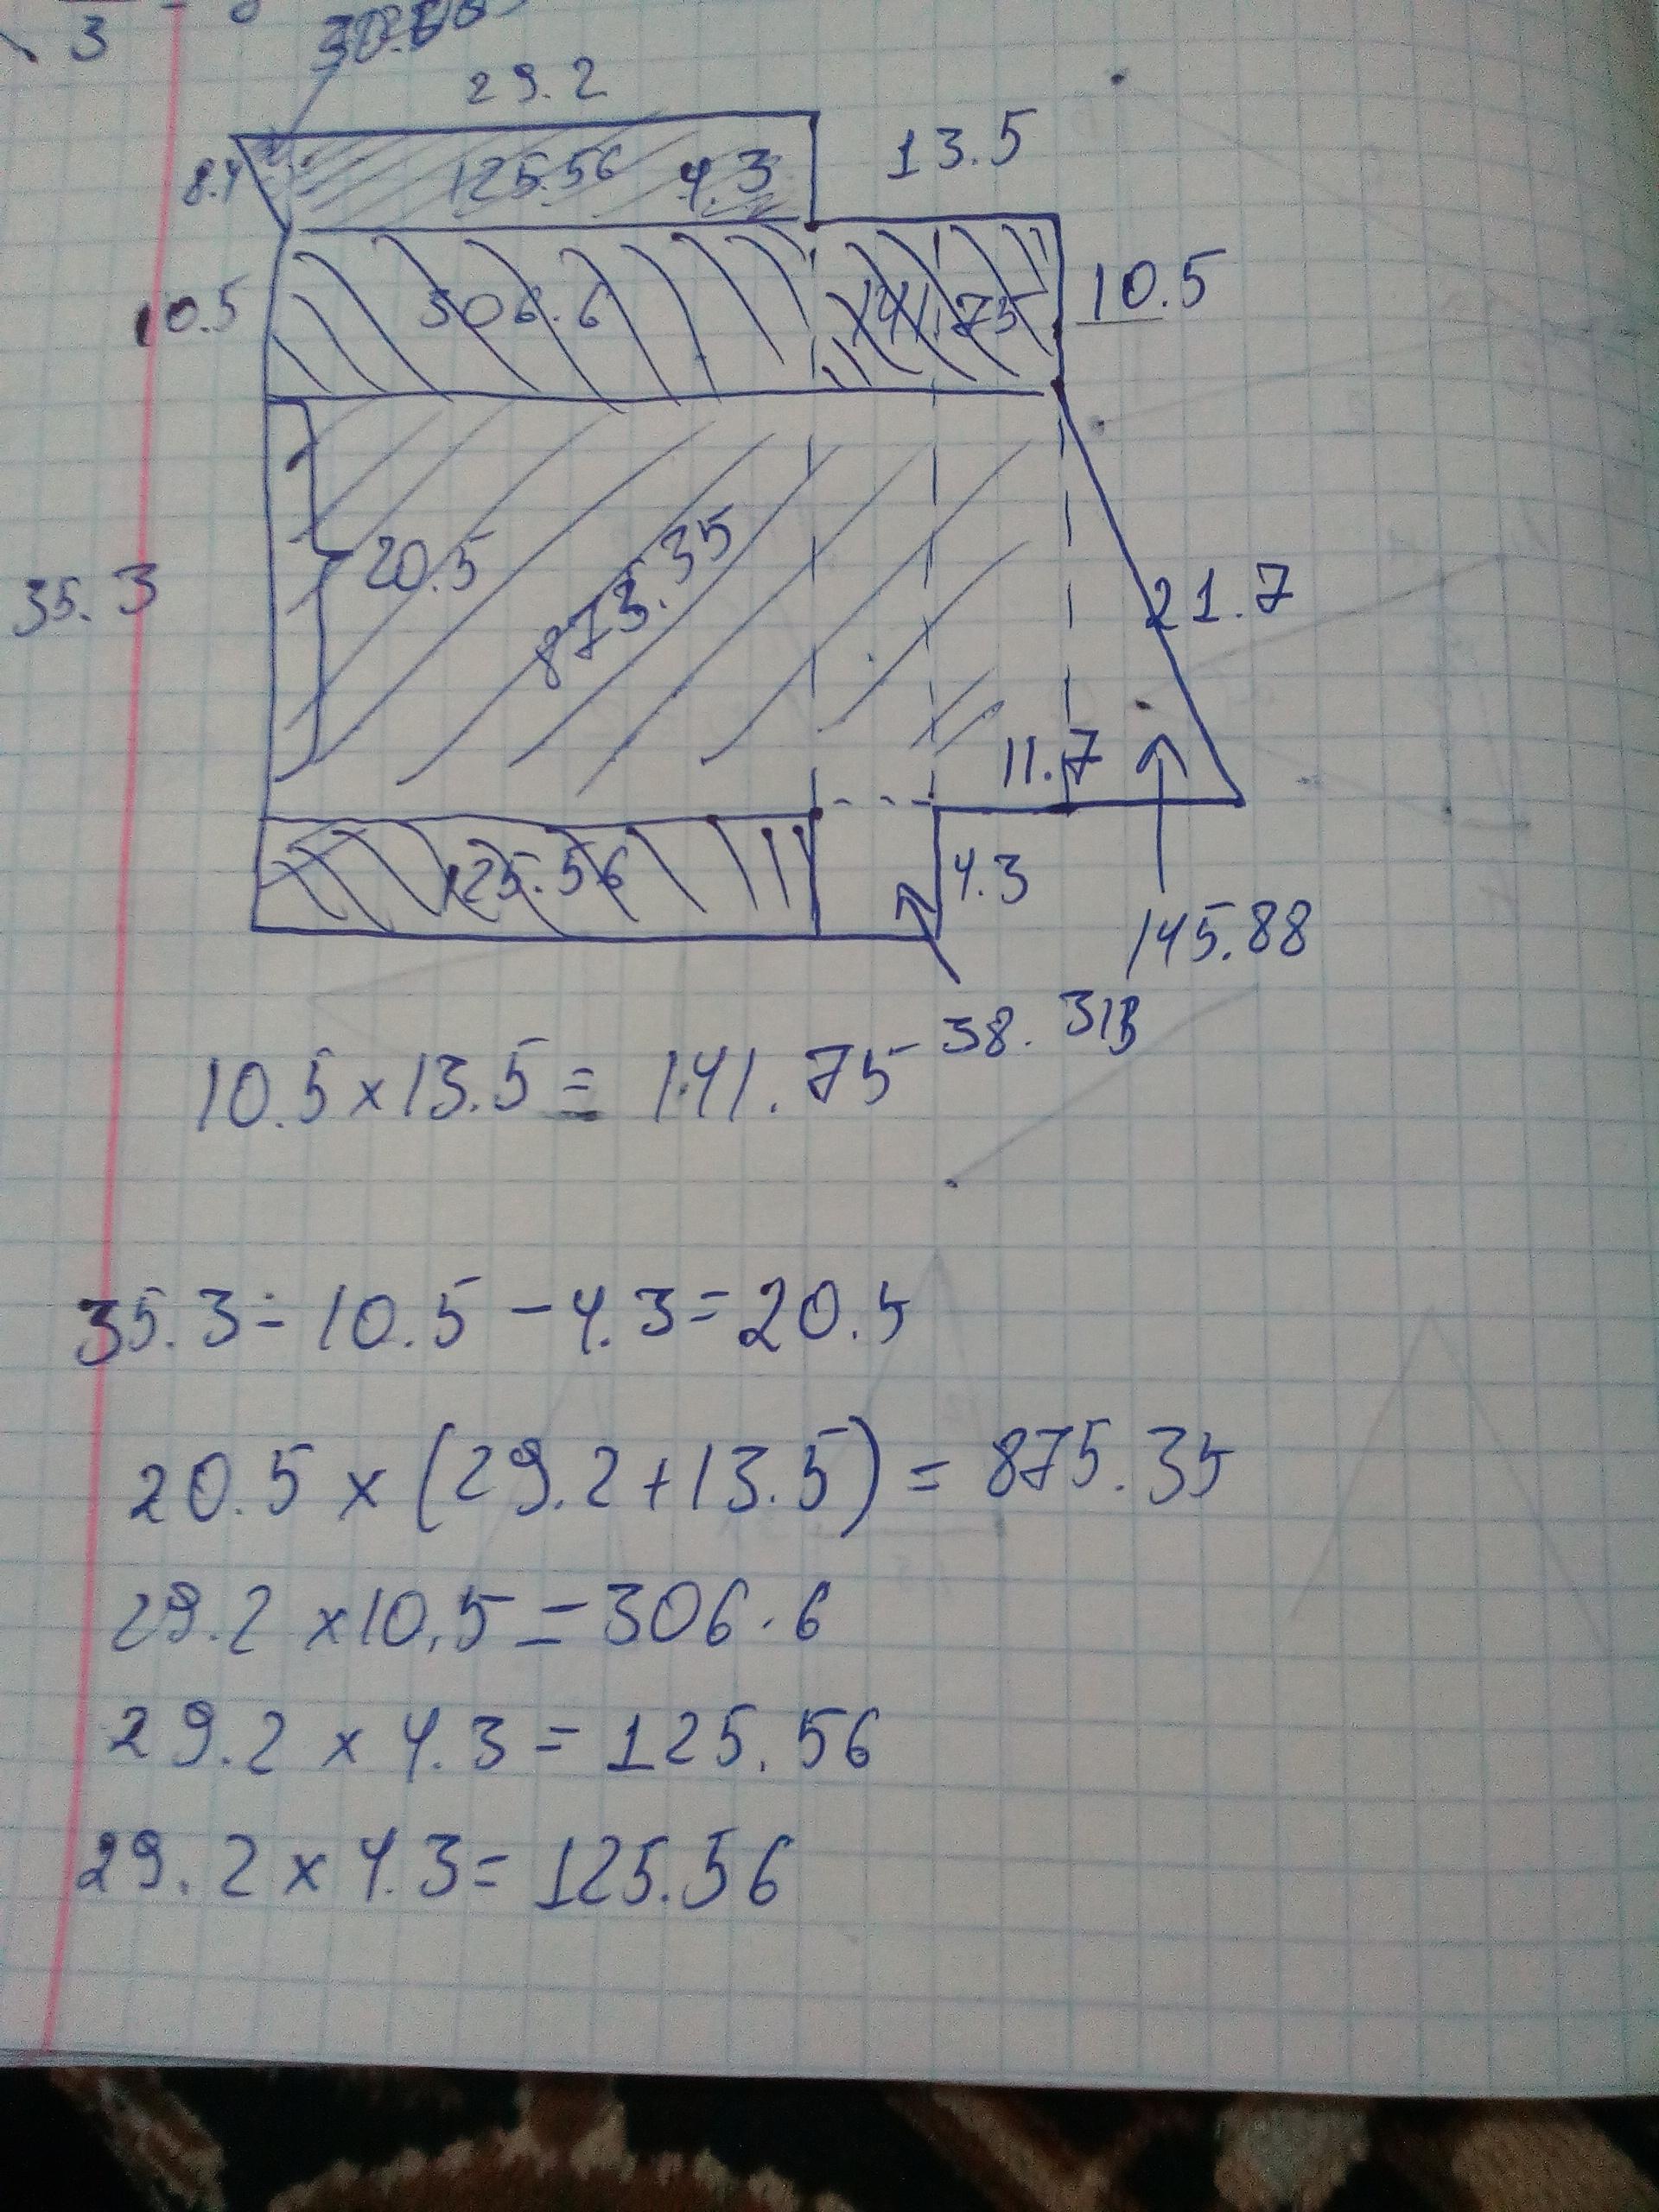 3
29.2
13.5
8.4
125.56
4.3
10.5
306.6
141.75
10.5
35.3
20.5
873.35
21.7
11.7
125.56
4.3
145.88
38.313
10.5 x 13.5 = 141.75
35.3 - 10.5 - 4.3 = 20.5
20.5 x (29.2 + 13.5) = 875.35
29.2 x 10.5 = 306.6
29.2 x 4.3 = 125.56
29.2 x 4.3 = 125.56